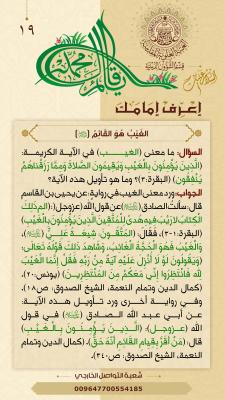 ١٩
قائم آل محمد
اِعْرِفْ إِمَامَكَ
الغَيْبُ هُوَ القَائِمُ
السؤال: ما معنى (الغيب) في الآية الكريمة:
(الَّذِينَ يُؤْمِنُونَ بِالْغَيْبِ وَيُقِيمُونَ الصَّلَاةَ وَمِمَّا رَزَقْنَاهُمْ
يُنفِقُونَ) (البقرة:٣)؟ وما هو تأويل هذه الآية؟
الجواب: ورد معنى الغيب في رواية: عن يحيى بن القاسم
قال: سألت الصادق عن قول الله (عزوجل): (الم ذَلِكَ
الْكِتَابُ لَا رَيْبَ فِيهِ هُدًى لِّلْمُتَّقِينَ الَّذِينَ يُؤْمِنُونَ بِالْغَيْبِ)
(البقرة:١-٣)، فقال: (المتَّقُونَ شِيعَةُ عَلِيٍّ
وَالْغَيْبُ فَهُوَ الْحُجَّةُ الْغَائِبُ، وَشَاهِدُ ذَلِكَ قَوْلُهُ تَعَالَى:
(وَيَقُولُونَ لَوْلَا أُنْزِلَ عَلَيْهِ آيَةٌ مِنْ رَبِّهِ فَقُلْ إِنَّمَا الْغَيْبُ
لِلَّهِ فَانْتَظِرُوا إِنِّي مَعَكُمْ مِنَ الْمُنْتَظِرِينَ) (يونس:٢٠).
(كمال الدين وتمام النعمة، الشيخ الصدوق: ص١٨).
وفي رواية أخرى ورد تأويل هذه الآية:
عن أبي عبد الله الصادق في قول
الله (عزوجل): (الَّذِينَ يُؤْمِنُونَ بِالْغَيْبِ)
قال: (مَنْ أَقَرَّ بِقِيَامِ القَائِمِ أَنَّهُ حَقٌّ). (كمال الدين وتمام
النعمة، الشيخ الصدوق: ص٣٤٠).
شعبة التواصل الخارجي
009647700554185